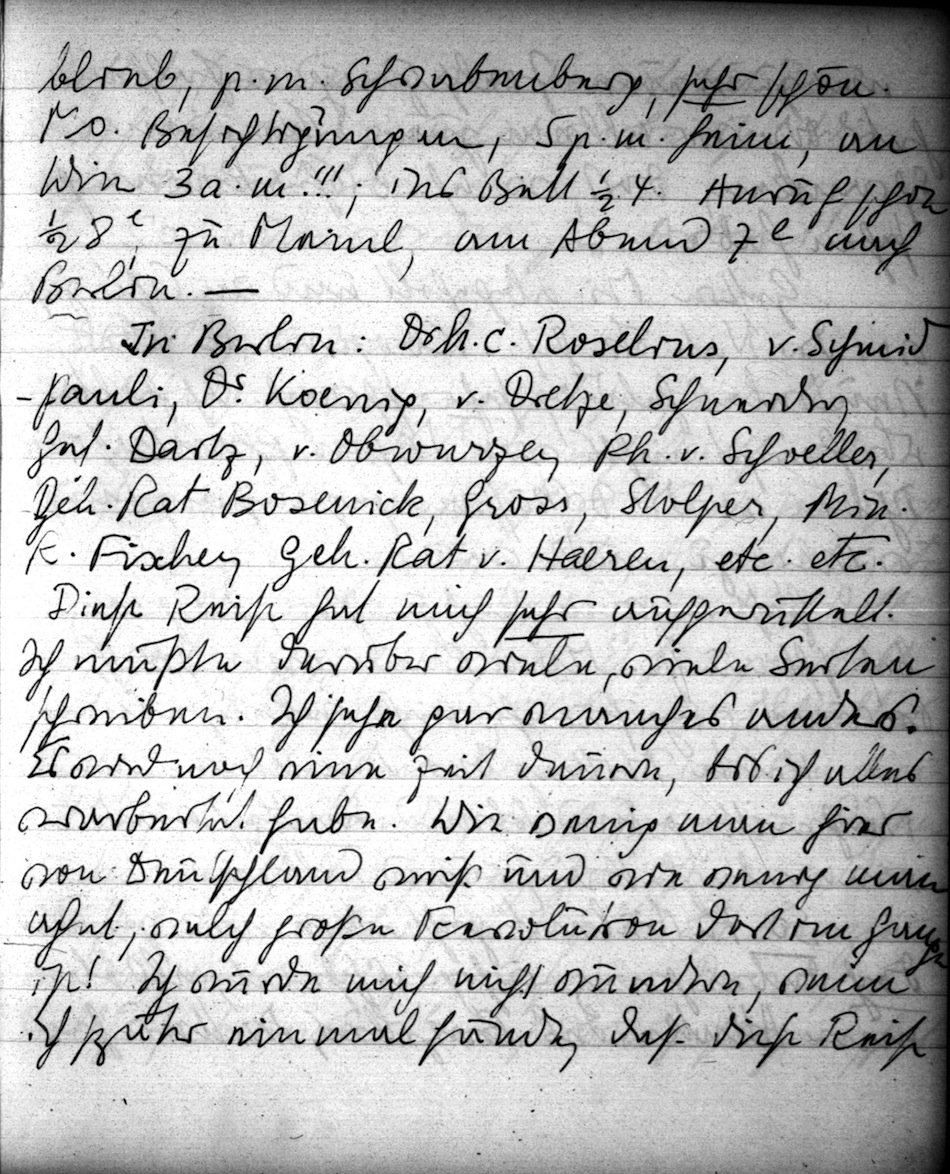 blieb, p.m. Schaubenberg, sehr schön.
Mo. Besichtigungen, 5 p.m. heim, an
Wien 3 a.m.!!!; ins Bett ½ 4. Anruf schon
½ 8ᵉ, zu Meinl, am Abend 7ᵉ nach
Berlin. —
In Berlin: Dr h.c. Roselius, v. Schmid
-Pauli, Dr. Koenig, v. Dietze, Schneider,
Ges. Daitz, v. Obwurzer, Ph. v. Schoeller,
Geh. Rat Bosenick, Gross, Stolper, Min.
R. Fischer, Geh. Rat v. Haeren, etc. etc.
Diese Reise hat mich sehr aufgerüttelt.
Ich müßte darüber viele, viele Seiten
schreiben. Ich sehe gar manches anders.
Es wird noch eine Zeit dauern, bis ich alles
verarbeitet habe. Wie wenig man hier
von Deutschland weiß und wie wenig man
ahnt, welch große Revolution dort im Gange
ist! Ich würde mich nicht wundern, wenn
ich später einmal fände, daß diese Reise